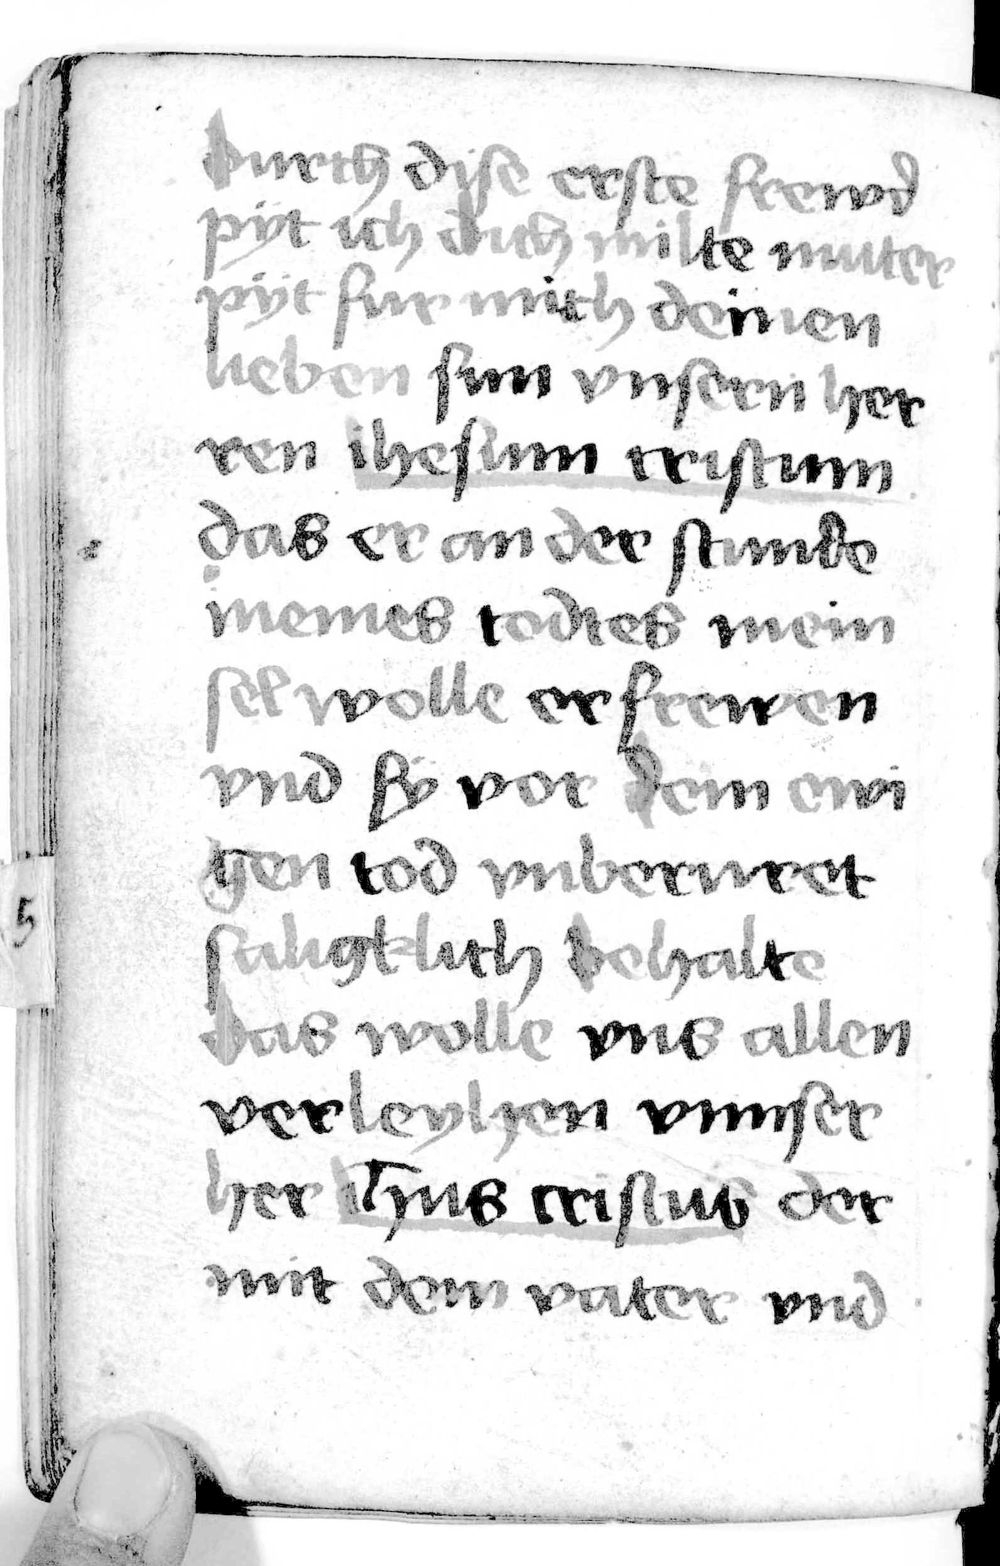 durch dise erste frewd
pyt ich dich milte muter
pyt fur mich deinen
lieben sun vnsern her
ren ihesum cristum
das er an der stunde
meines todtes mein
sel wolle erfrewen
vnd sy vor dem ewi
gen tod vnberuret
saligklich behalte
das wolle vns allen
verleyhen vnnser
her ihus cristus der
mit dem vater vnd
5